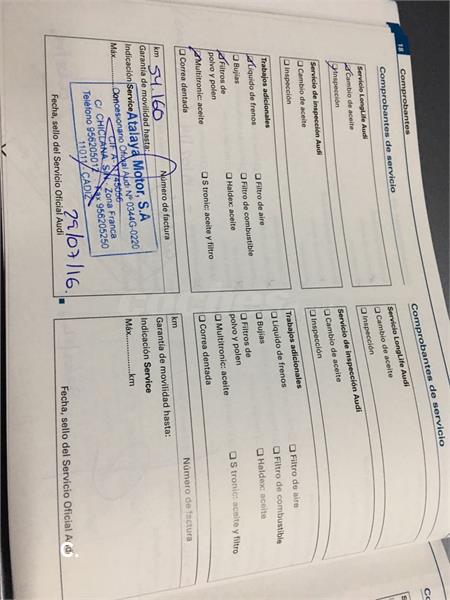 18
Comprobantes
Comprobantes de servicio
Servicio LongLife Audi
☑ Cambio de aceite
☑ Inspección
Servicio de inspección Audi
❑ Cambio de aceite
❑ Inspección
Trabajos adicionales
☑ Líquido de frenos
❑ Filtro de aire
❑ Bujías
❑ Filtro de combustible
☑ Filtros de
polvo y polen
❑ Haldex: aceite
☑ Multitronic: aceite
❑ S tronic: aceite y filtro
❑ Correa dentada
Número de factura
km 54.160
Garantía de movilidad hasta:
Indicación Service
Máx.
Atalaya Motor S.A
Concesionario Oficial Audi Nº 0344G-0220
C/ CHICLANA, S/N - Zona Franca
Teléfono 956205017 Fax 956205250
11011 - CADIZ
29/07/16.
Fecha, sello del Servicio Oficial Audi
Comprobantes de servicio
Servicio LongLife Audi
❑ Cambio de aceite
❑ Inspección
Servicio de inspección Audi
❑ Cambio de aceite
❑ Inspección
Trabajos adicionales
❑ Líquido de frenos
❑ Filtro de aire
❑ Bujías
❑ Filtro de combustible
❑ Filtros de
polvo y polen
❑ Haldex: aceite
❑ Multitronic: aceite
❑ S tronic: aceite y filtro
❑ Correa dentada
Número de factura
km
Garantía de movilidad hasta:
Indicación Service
Máx................km
Fecha, sello del Servicio Oficial Audi